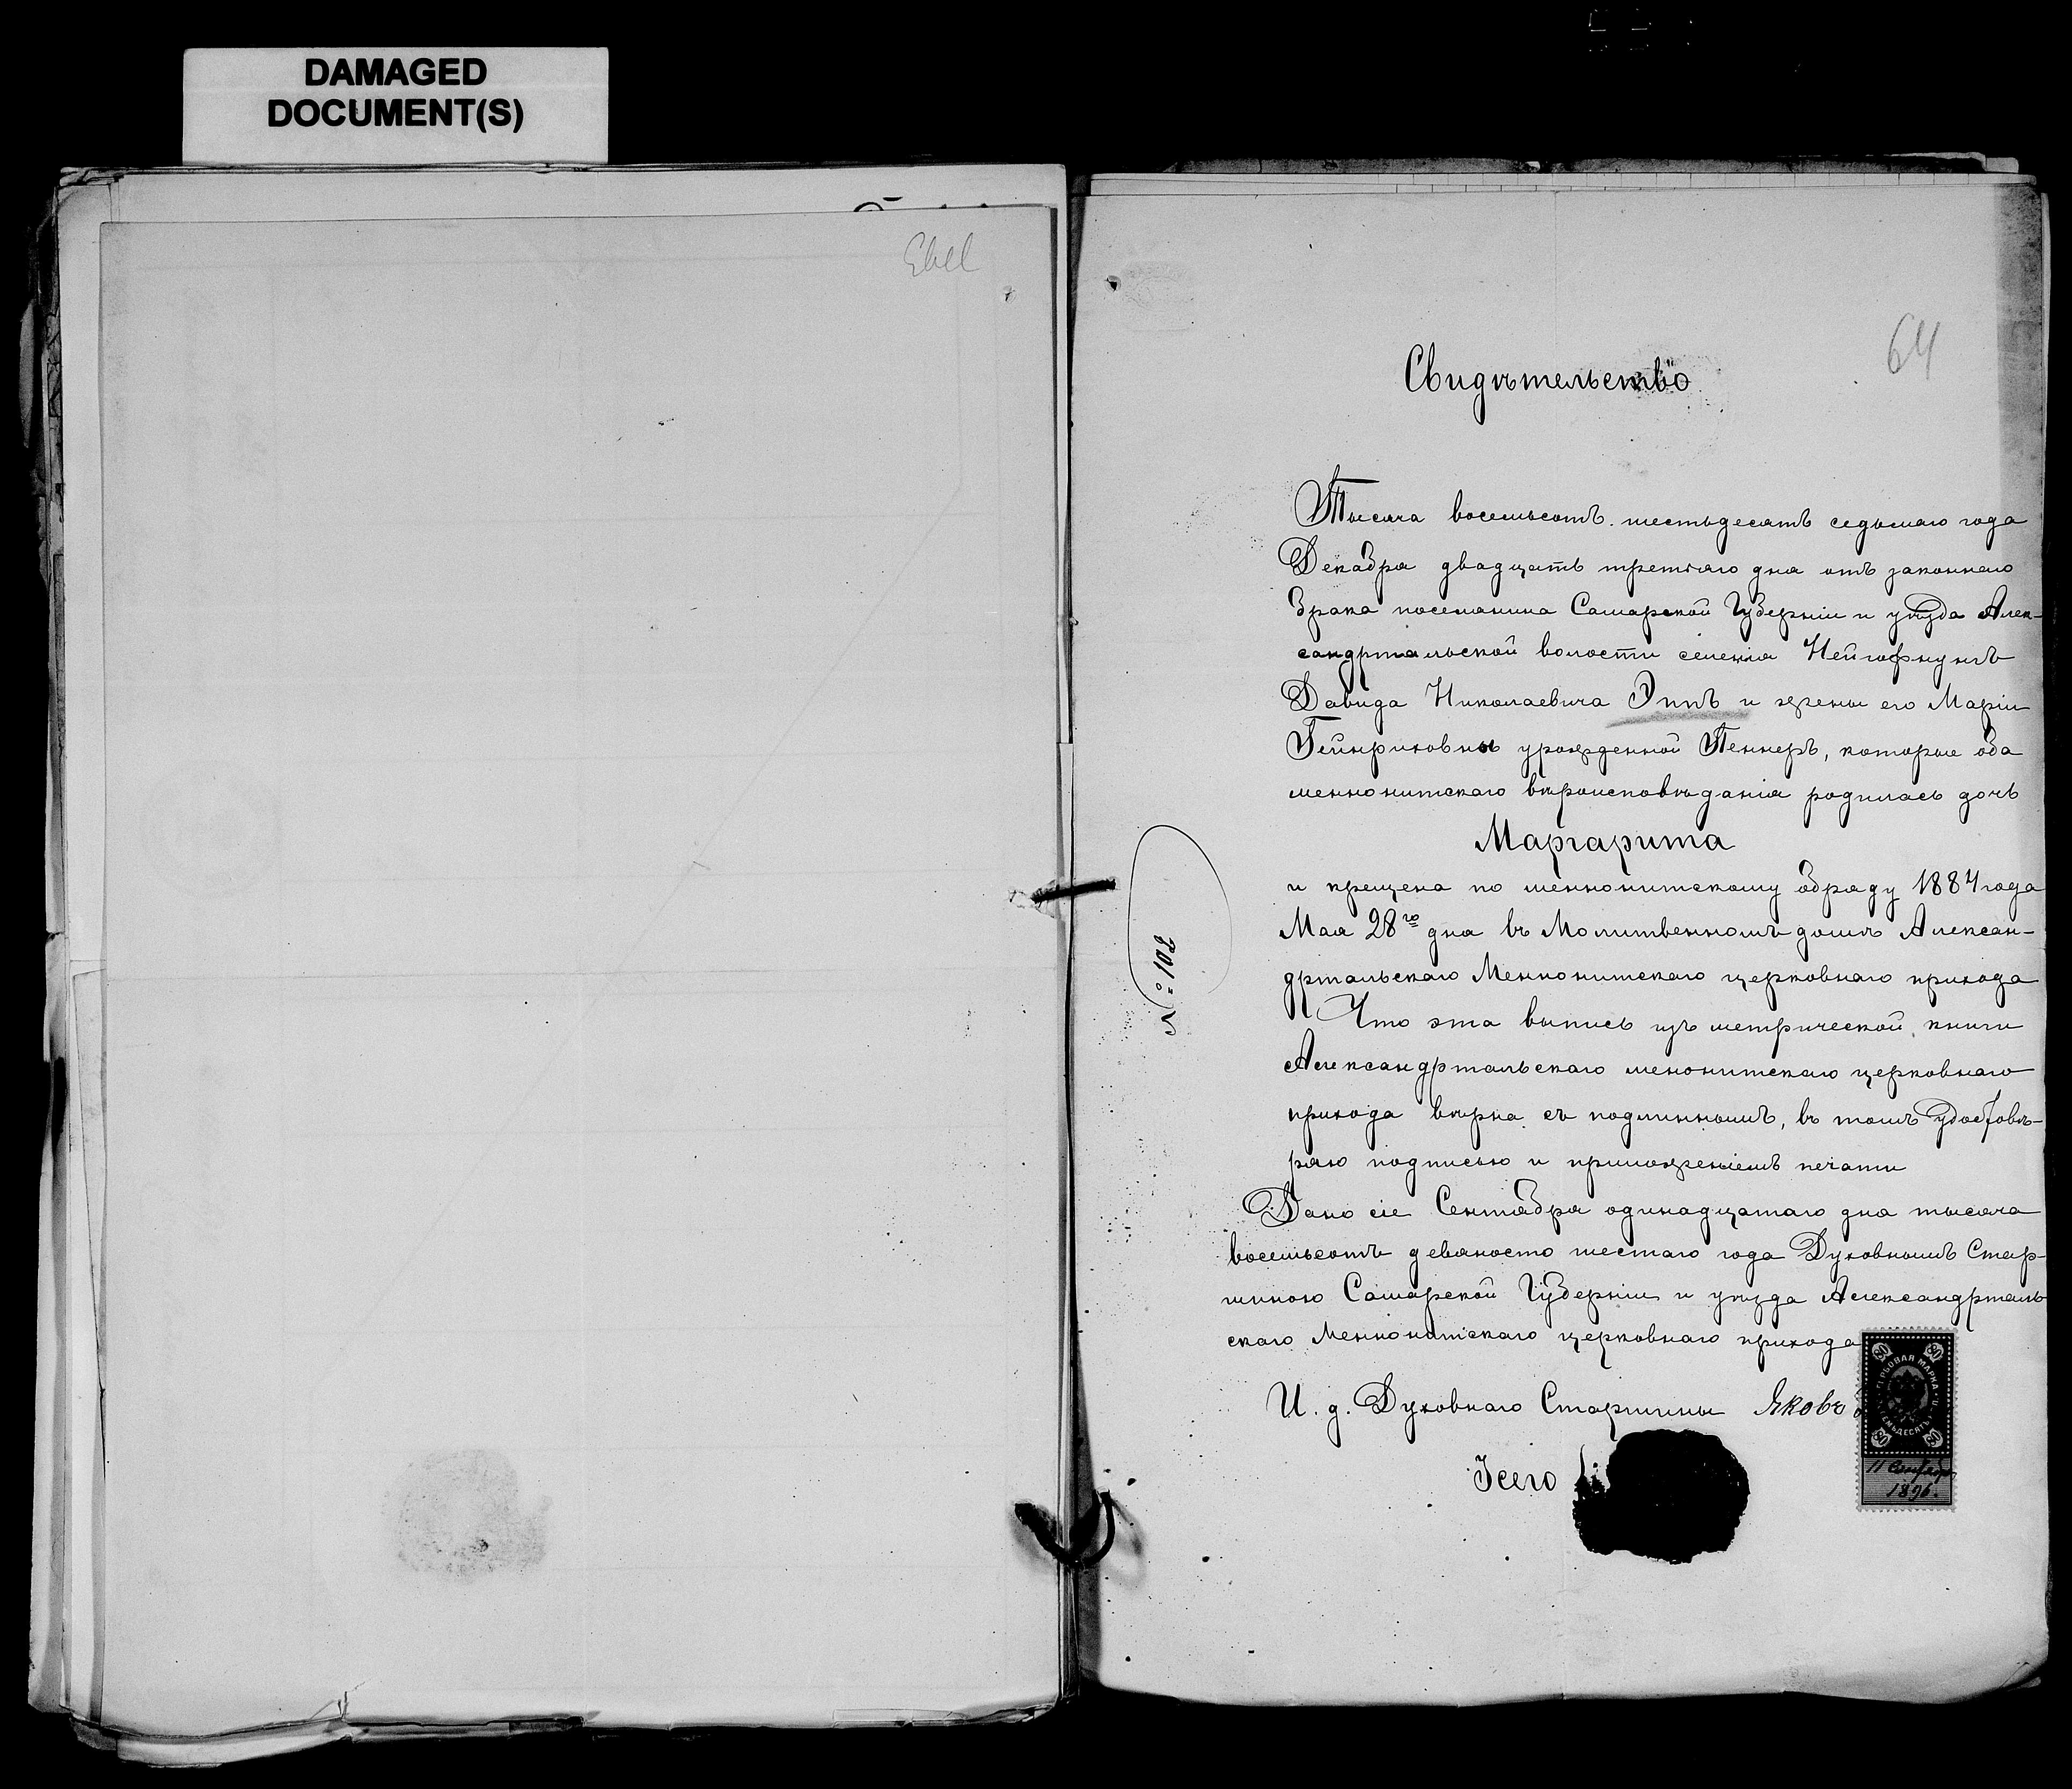 DAMAGED
DOCUMENT(S)
Ebell
64
Свидѣтельство
Тысяча восемьсотъ шестьдесятъ седьмаго года
Декабря двадцать третяго дня отъ законнаго
брака поселянина Самарской Губерніи и уѣзда Алек-
сандртальской волости селенія Нейгофнунгъ
Давида Николаевича Эппъ и жены его Маріи
Гейнриховны урожденной Пеннеръ, которые оба
меннонитскаго вѣроисповѣданія родилась дочь
Маргарита
и крещена по меннонитскому обряду 1884 года
Мая 28го дня въ Молитвенномъ домѣ Алексан-
дртальскаго Меннонитскаго церковнаго прихода
Что эта выпись изъ метрической книги
Александртальскаго менонитскаго церковнаго
прихода вѣрна съ подлиннымъ, въ томъ удостовѣ-
ряю подписью и приложеніемъ печати
Дано сіе Сентября одинадцатаго дня тысяча
восемьсотъ девяносто шестаго года Духовнымъ Стар-
шиною Самарской Губерніи и уѣзда Александрталь
скаго Меннонитскаго церковнаго прихода
И. д. Духовнаго Старшины Яковъ
№ 102
80 80
ГЕРБОВАЯ МАРКА
80 80
11 Сентября
1896.